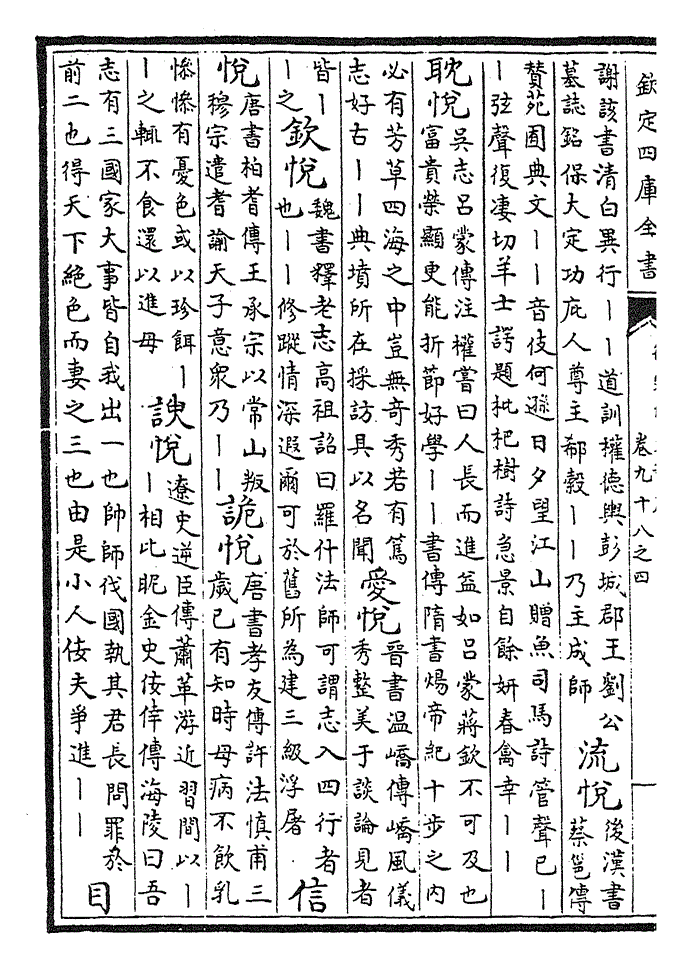 欽定四庫全書
卷九十八之四
謝該書清白異行丨丨道訓權德輿彭城郡王劉公
墓誌銘保大定功庇人尊主郗縠丨丨乃主成師
流悅
後漢書
蔡邕傳
贊苑囿典文丨丨音伎何遜日夕望江山贈魚司馬詩管聲已丨
丨弦聲復凄切羊士諤題枇杷樹詩急景自餘妍春禽幸丨丨
耽悅
吳志呂蒙傳注權嘗曰人長而進益如呂蒙蔣欽不可及也
富貴榮顯更能折節好學丨丨書傳隋書煬帝紀十步之内
必有芳草四海之中豈無奇秀若有篤
志好古丨丨典墳所在採訪具以名聞
愛悅
晉書温嶠傳嶠風儀
秀整美于談論見者
皆丨
丨之
欽悅
魏書釋老志高祖詔曰羅什法師可謂志入四行者
也丨丨修蹤情深遐爾可於舊所為建三級浮屠
信
悅
唐書柏耆傳王承宗以常山叛
穆宗遣耆諭天子意衆乃丨丨
詭悅
唐書孝友傳許法慎甫三
歲已有知時母病不飲乳
慘慘有憂色或以珍餌丨
丨之輒不食還以進母
諛悅
遼史逆臣傳蕭革游近習間以丨
丨相比昵金史佞倖傳海陵曰吾
志有三國家大事皆自我出一也帥師伐國執其君長問罪於
前二也得天下絕色而妻之三也由是小人佞夫爭進丨丨
目